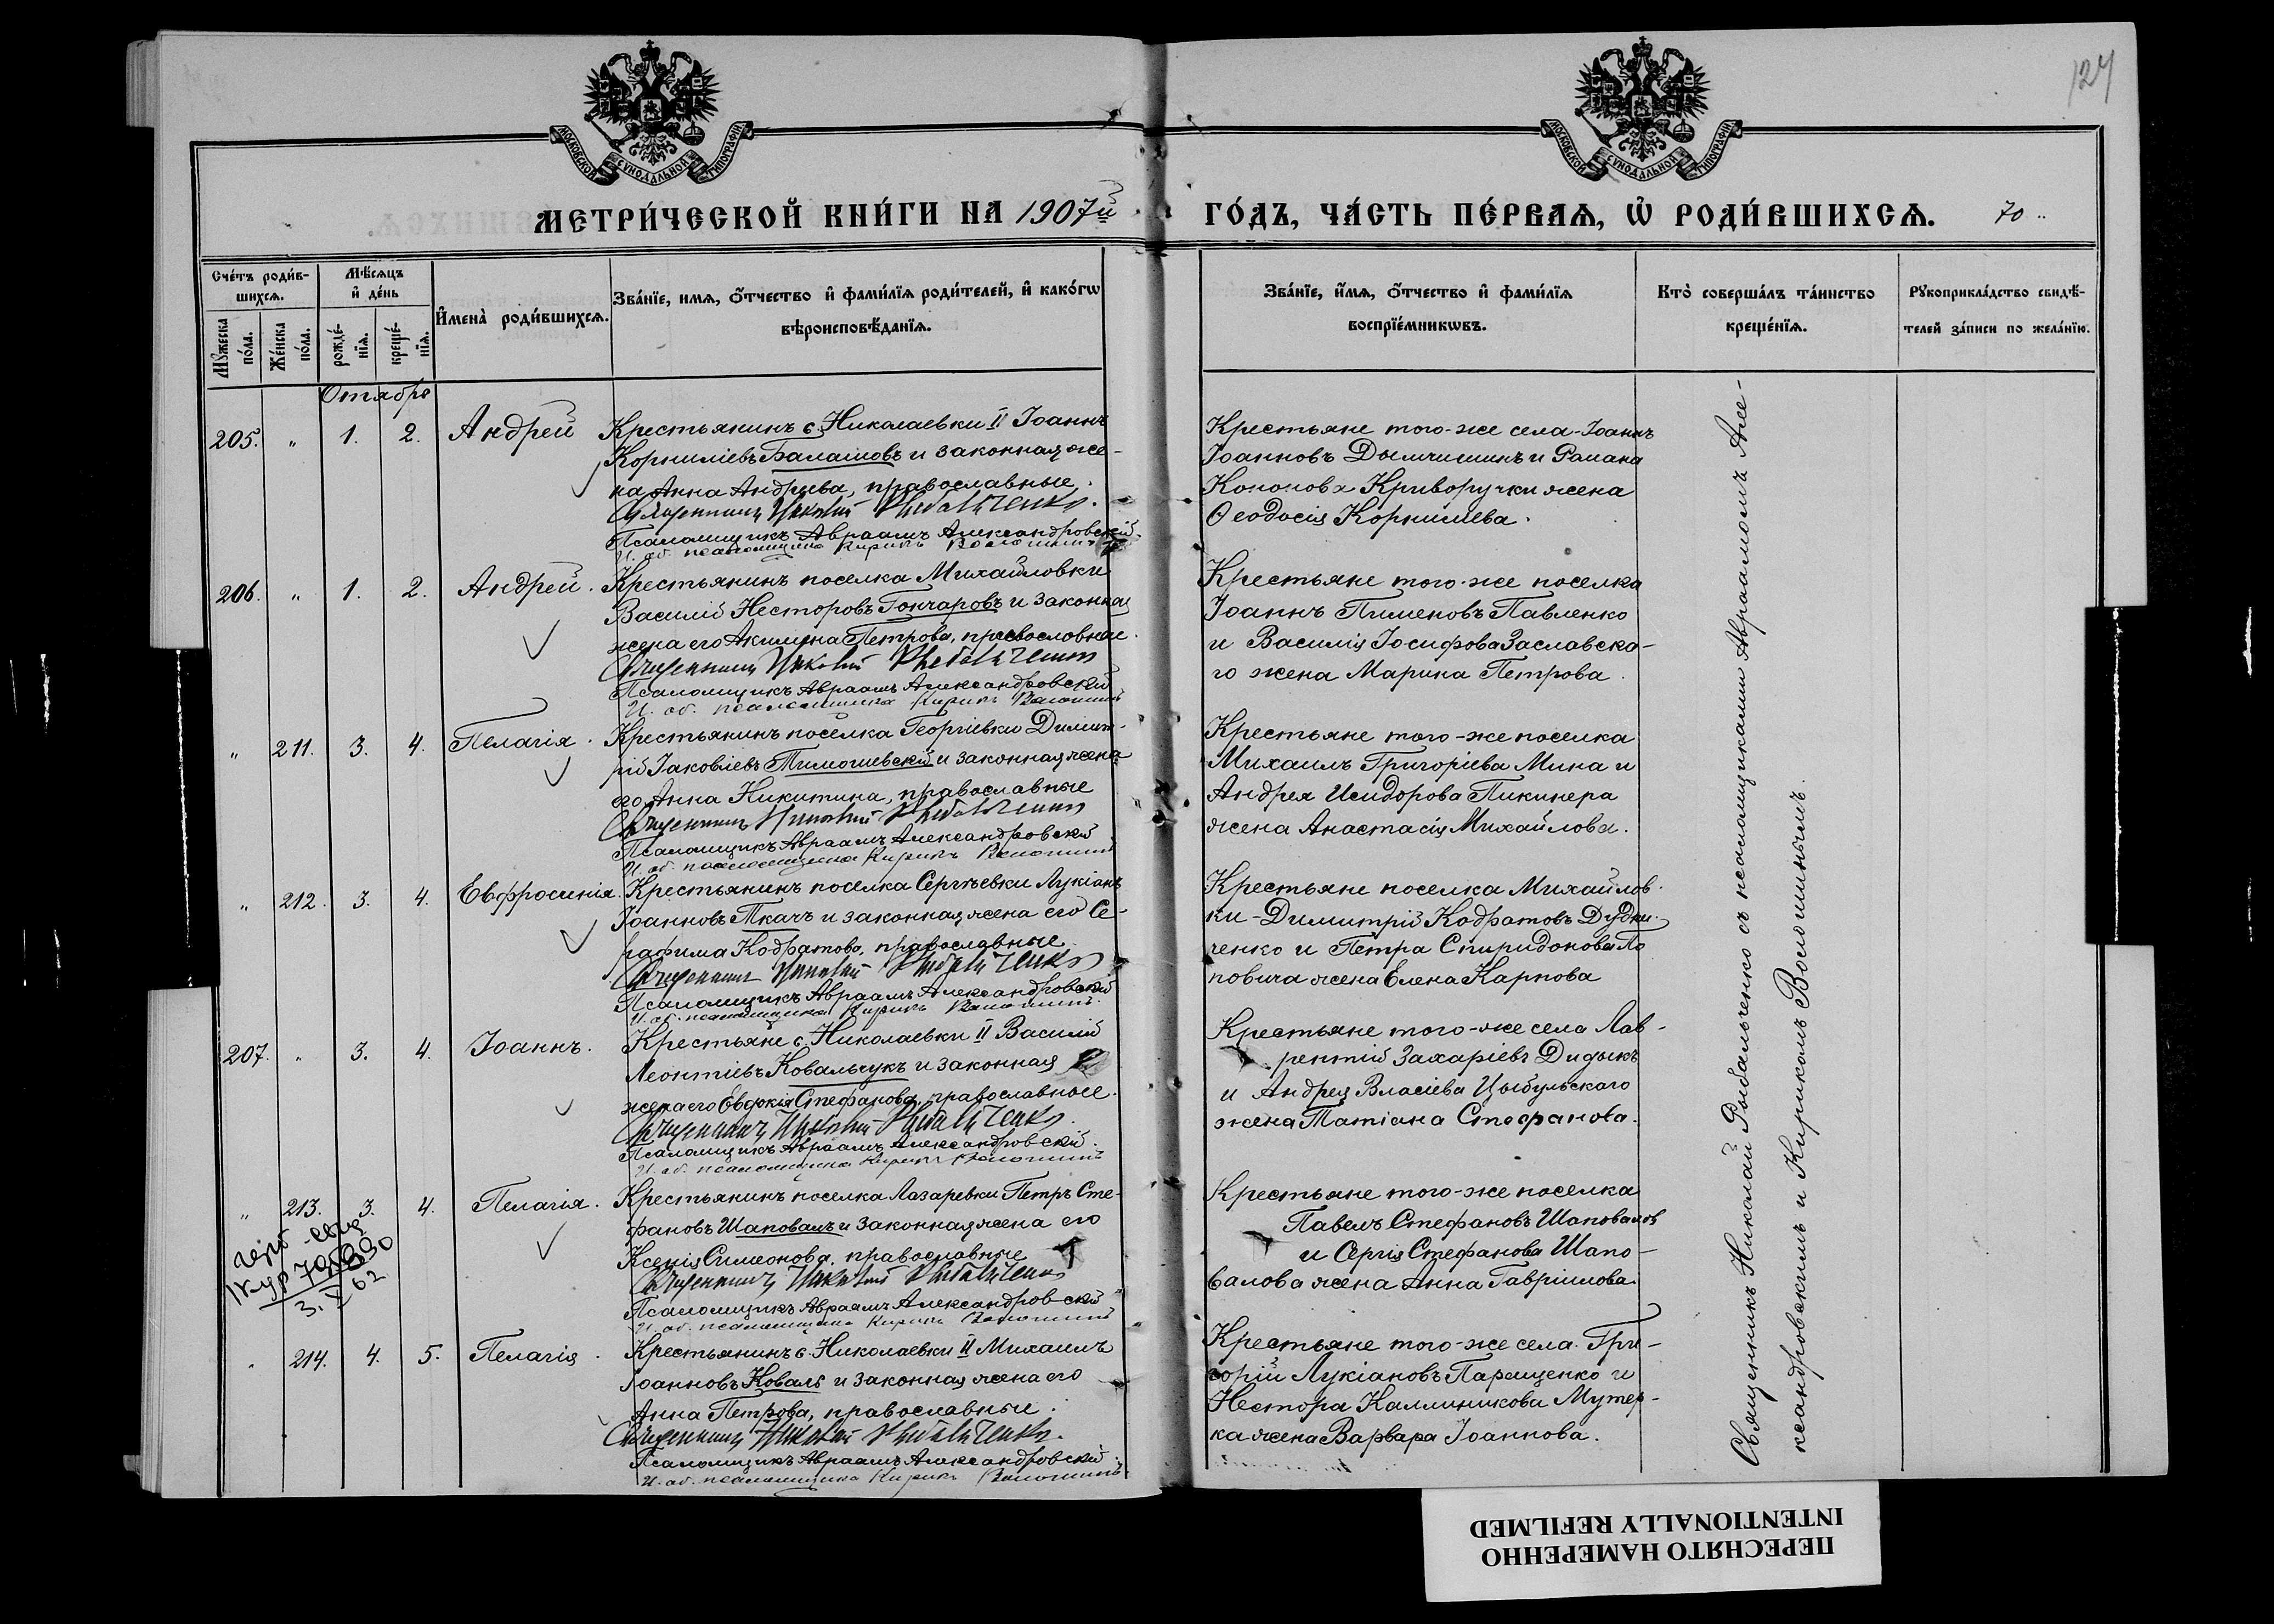 127
МОСКОВСКОЙ СУНОДАЛЬНОЙ ТИПОГРАФІИ
МОСКОВСКОЙ СУНОДАЛЬНОЙ ТИПОГРАФІИ
МЕТРИ́ЧЕСКОЙ КНИ́ГИ НА 1907й
ГО́ДЪ, ЧА́СТЬ ПЕ́РВАѦ, Ѡ҆ РОДИ́ВШИХСѦ. 70
Сче́тъ роди́в-
шихсѧ.
Мꙋ́жеска по́ла.
Же́нска по́ла.
Мѣ́сѧцъ
и҆ де́нь
рожде́-
нїѧ.
креще́-
нїѧ.
И҆мена̀ роди́вшихсѧ.
Зва́нїе, имѧ, ѻ҆́тчество и҆ фами́лїѧ роди́телей, и҆ како́гѡ
вѣроисповѣ́данїѧ.
Зва́нїе, и҆́мѧ, ѻ҆́тчество и҆ фами́лїѧ
воспрїе́мникѡвъ.
Кто̀ соверша́лъ та́инство
креще́нїѧ.
Рꙋкоприкла́дство свидѣ́-
телей за́писи по жела́нїю.
Октября
205. " 1. 2. Андрей
Крестьянинъ с. Николаевки II Іоаннъ
Корниліевъ Балашовъ и законная же-
на Анна Андреева, православные.
Священникъ Николай Рыбальченко.
Псаломщикъ Авраамъ Александровскій.
И. об. псаломщика Кирикъ Волошинъ
Крестьяне того-же села-Іоаннъ
Іоанновъ Дымчишинъ и Романа
Кононова Криворучки жена
Ѳеодосія Корнилиева.
206. " 1. 2. Андрей.
Крестьянинъ поселка Михайловки
Василій Несторовъ Гончаровъ и законная
жена его Акилина Петрова, православные.
Священникъ Николай Рыбальченко
Псаломщикъ Авраамъ Александровскій
И. об. псаломщика Кирикъ Волошинъ
Крестьяне того-же поселка
Іоаннъ Пименовъ Павленко
и Василія Іосифова Заславска-
го жена Марина Петрова.
" 211. 3. 4. Пелагія.
Крестьянинъ поселка Георгіевки Димит-
рій Іаковлевъ Тимошевскій и законная жена
его Анна Никитина, православные
Священникъ Николай Рыбальченко
Псаломщикъ Авраамъ Александровскій
И. об. псаломщика Кирикъ Волошинъ
Крестьяне того-же поселка
Михаилъ Григоріева Мина и
Андрея Исидорова Пикинера
жена Анастасія Михайлова.
" 212. 3. 4. Евфросинія.
Крестьянинъ поселка Сергѣевки Лукіанъ
Іоанновъ Ткачъ и законная жена его Се-
рафима Кодратова, православные
Священникъ Николай Рыбальченко
Псаломщикъ Авраамъ Александровскій
И. об. псаломщика Кирикъ Волошинъ.
Крестьяне поселка Михайлов-
ки-Димитрій Кодратовъ Дудни-
ченко и Петра Спиридонова По
повича жена Елена Карпова
207. " 3. 4. Іоаннъ.
Крестьяне с. Николаевки II Василій
Леонтіевъ Ковальчукъ и законная
жена его Евдокія Стефанова, православные.
Священникъ Николай Рыбальченко.
Псаломщикъ Авраамъ Александровскій.
И. об. псаломщика Кирикъ Волошинъ
Крестьяне того-же села Лав-
рентій Захаріевъ Дидыкъ
и Андрея Власіева Цыбульскаго
жена Татіана Стефанова.
" 213. 3. 4. Пелагія.
Крестьянинъ поселка Лазаревки Петръ Сте-
фановъ Шаповалъ и законная жена его
Ксенія Симеонова, православные
Священникъ Николай Рыбальченко
Псаломщикъ Авраамъ Александровскій
И. об. псаломщика Кирикъ Волошинъ
3. X 62
Крестьяне того-же поселка
Павелъ Стефановъ Шаповалов
и Сергія Стефанова Шапо-
валова жена Анна Гавріилова.
" 214. 4. 5. Пелагія.
Крестьянинъ с. Николаевки II Михаилъ
Іоанновъ Коваль и законная жена его
Анна Петрова, православные.
Священникъ Николай Рыбальченко.
Псаломщикъ Авраамъ Александровскій.
И. об. псаломщика Кирикъ Волошинъ.
Крестьяне того-же села. Гри-
горій Лукіановъ Паращенко и
Нестора Каллиникова Мутер-
ка жена Варвара Іоаннова.
Священникъ Николай Рыбальченко съ псаломщиками Авраамомъ Але-
ксандровскимъ и Кирикомъ Волошинымъ.
ПЕРЕСНЯТО НАМЕРЕННО
INTENTIONALLY REFILMED